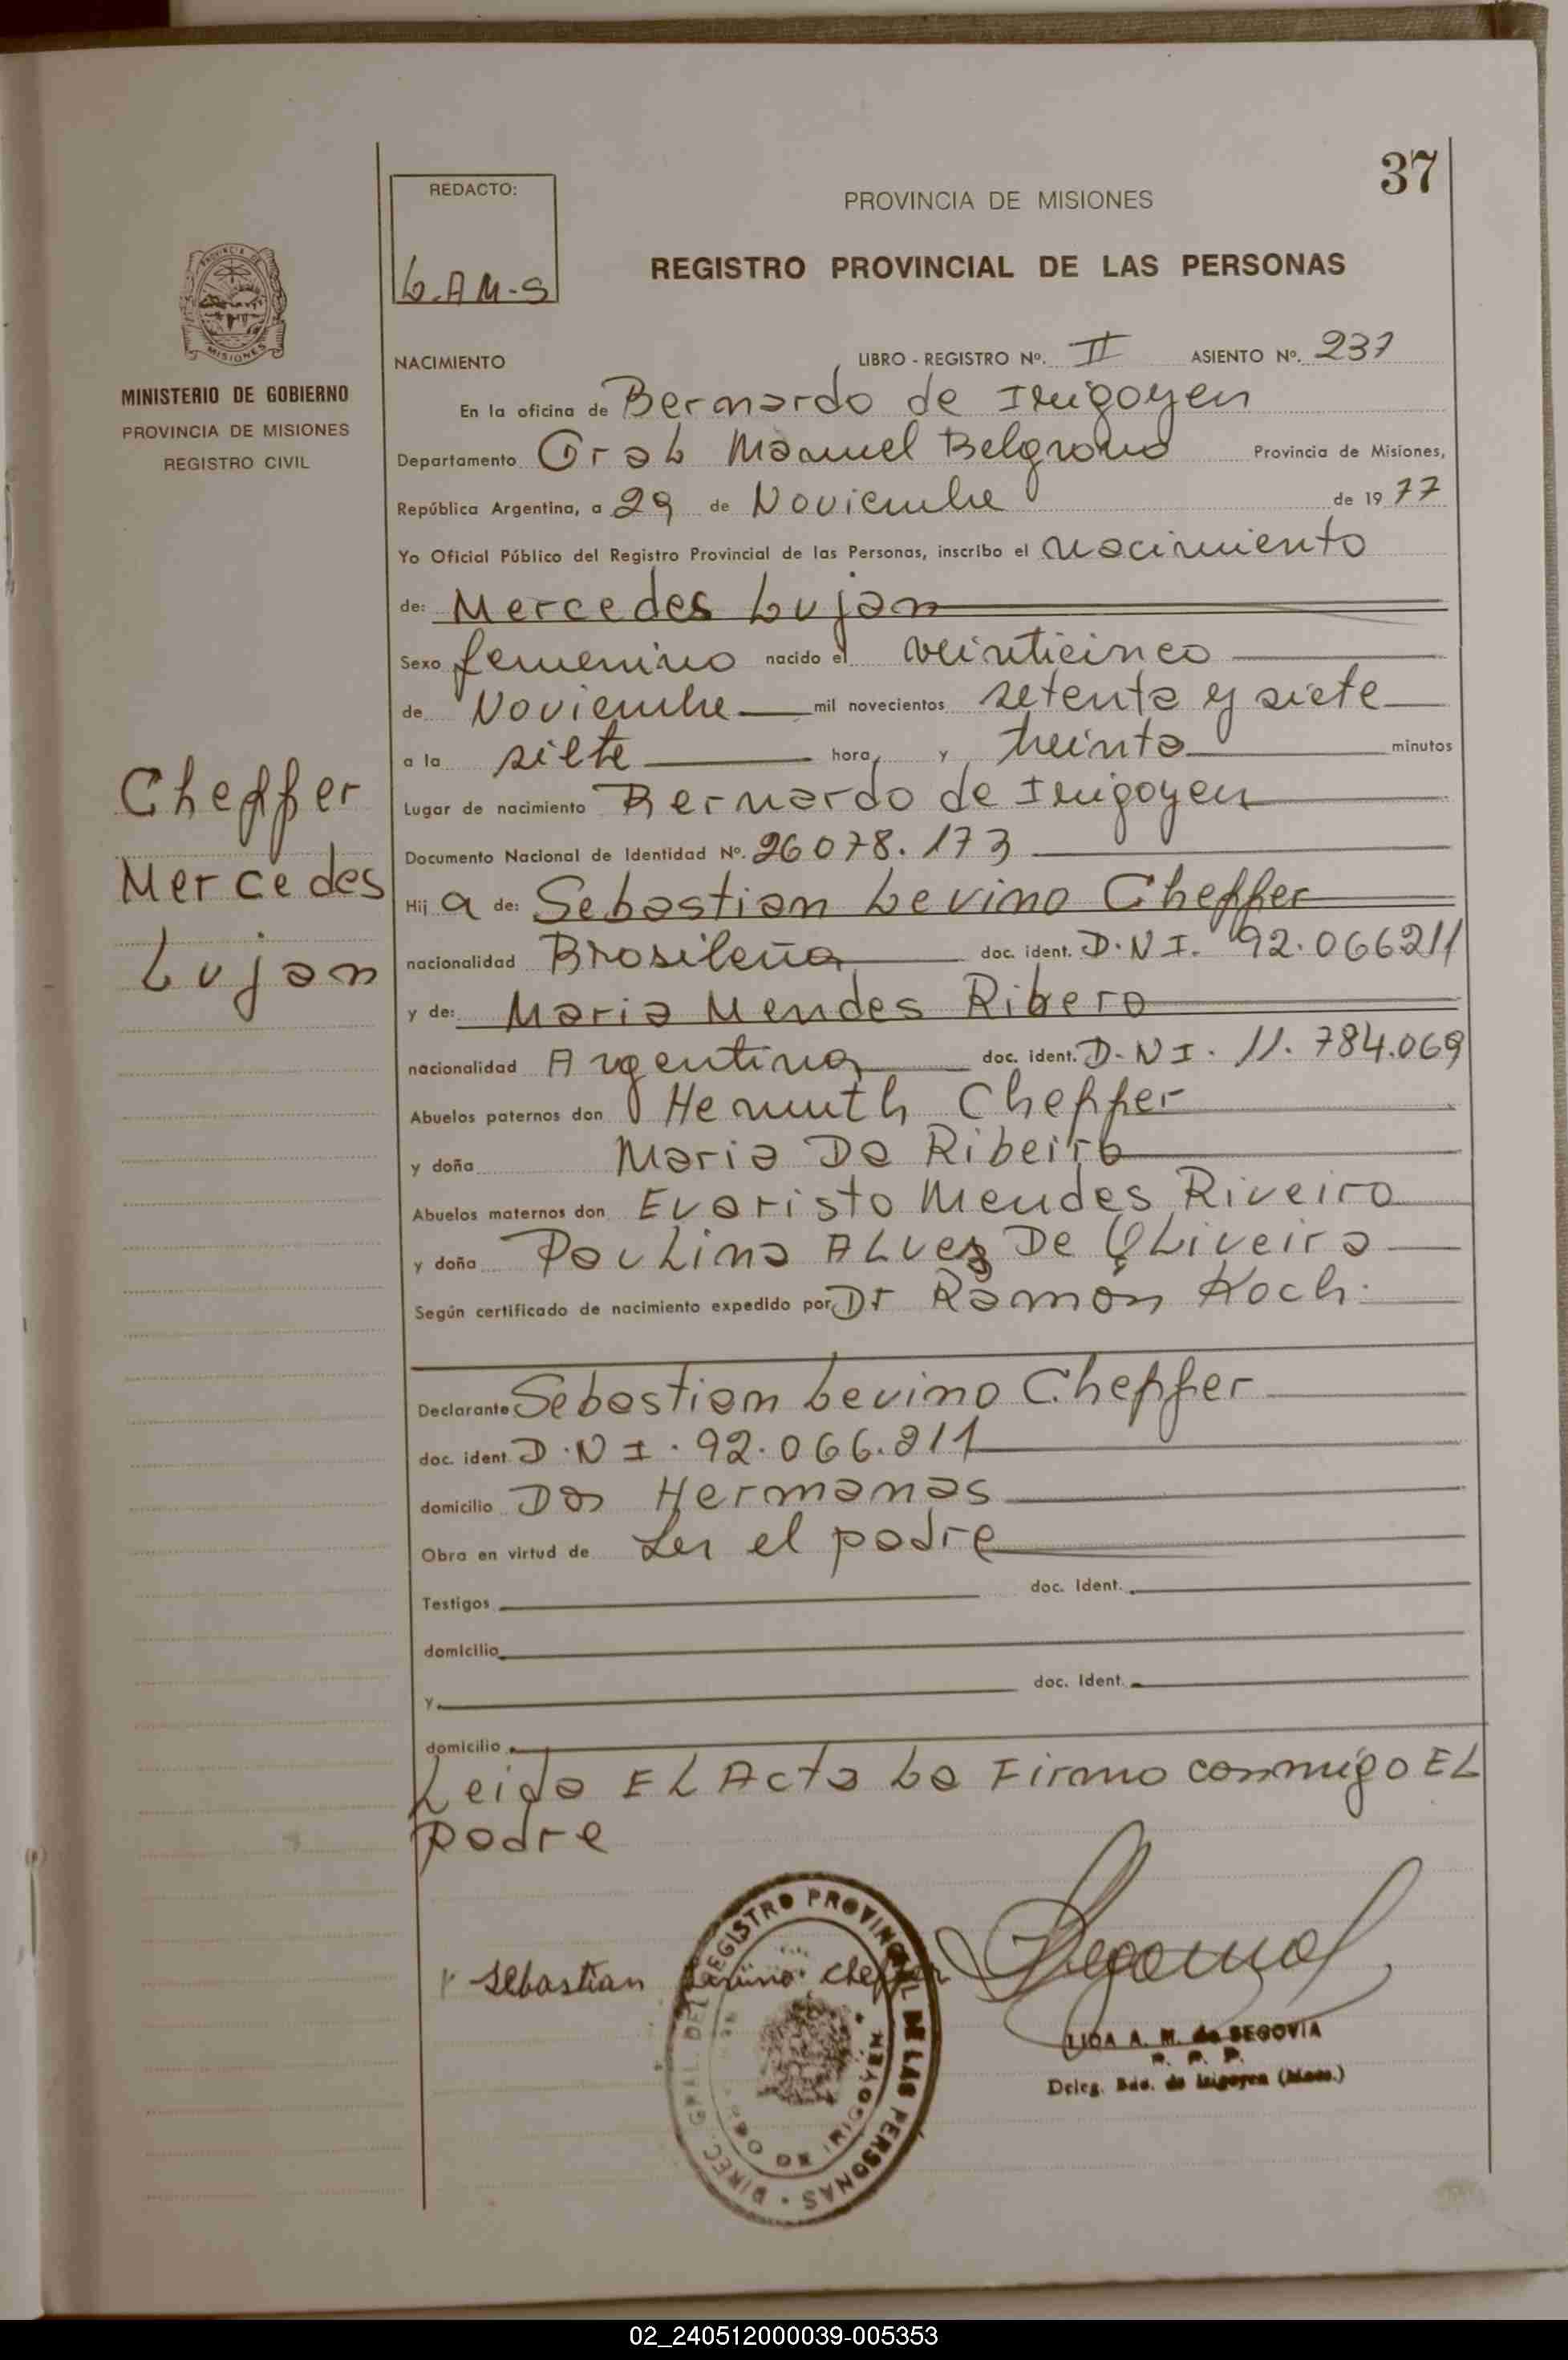 37
REDACTO:
L.A M-S
PROVINCIA DE MISIONES
REGISTRO PROVINCIAL DE LAS PERSONAS
PROVINCIA DE
MISIONES
MINISTERIO DE GOBIERNO
PROVINCIA DE MISIONES
REGISTRO CIVIL
NACIMIENTO LIBRO - REGISTRO Nº. II ASIENTO Nº. 237
En la oficina de Bernardo de Irigoyen
Departamento Gral Manuel Belgrano Provincia de Misiones,
República Argentina, a 29 de Noviembre de 19 77
Yo Oficial Público del Registro Provincial de las Personas, inscribo el nacimiento
de: Mercedes Lujan
Sexo femenino nacido el veinticinco
de Noviembre mil novecientos setenta y siete
a la siete hora, y treinta minutos
Lugar de nacimiento Bernardo de Irigoyen
Documento Nacional de Identidad Nº. 26078.173
Hij a de: Sebastian Levino Cheffer
nacionalidad Brasileña doc. ident. D.N I. 92.066211
y de: Maria Mendes Ribero
nacionalidad Argentina doc. ident. D-N I. 11.784.069
Abuelos paternos don Hemuth Cheffer
y doña Maria Da Ribeiro
Abuelos maternos don Evaristo Mendes Riveiro
y doña PauLina ALves De OLiveira
Según certificado de nacimiento expedido por Dr Ramón Koch.
Cheffer
Mercedes
Lujan
Declarante Sebastian Levino Cheffer
doc. ident. D.N I. 92.066.211
domicilio Dos Hermanas
Obra en virtud de Ser el padre
Testigos doc. Ident.
domicilio
y doc. Ident.
domicilio
Leida EL Acta La Firmo conmigo EL
padre
Sebastian Levino Cheffer
DIREC. GRAL. DEL REGISTRO PROVINCIAL DE LAS PERSONAS
DE IRIGOYEN
LIDA A. M. de SEGOVIA
Deleg. Bdo. de Irigoyen (Mnes.)
02_240512000039-005353